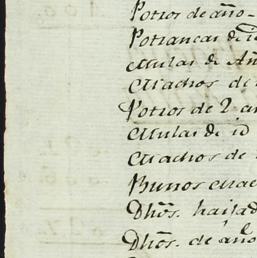 Potros de año
Potrancas de id
Mulas de Añ
Machos de
Potros de 2 an
Mulas de id
Machos de
Burros
Dhos. hailad
Dhos. de año